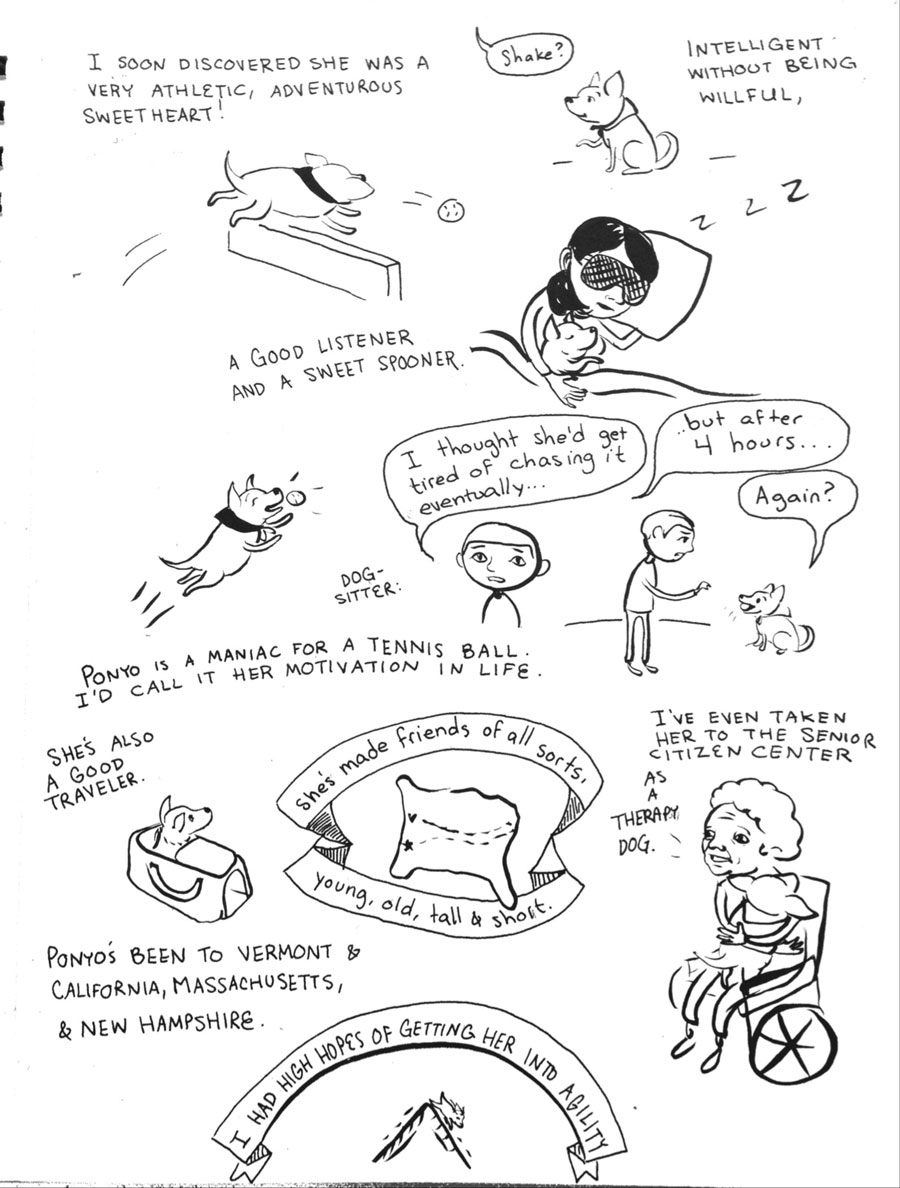 I SOON DISCOVERED SHE WAS A
VERY ATHLETIC, ADVENTUROUS
SWEETHEART!
Shake?
INTELLIGENT
WITHOUT BEING
WILLFUL,
Z Z Z
A GOOD LISTENER
AND A SWEET SPOONER.
I thought she'd get
tired of chasing it
eventually...
..but after
4 hours...
Again?
DOG-
SITTER:
PONYO IS A MANIAC FOR A TENNIS BALL.
I'D CALL IT HER MOTIVATION IN LIFE.
SHE'S ALSO
A GOOD
TRAVELER.
she's made friends of all sorts,
young, old, tall & short.
I'VE EVEN TAKEN
HER TO THE SENIOR
CITIZEN CENTER
AS
A
THERAPY
DOG.
PONYO'S BEEN TO VERMONT &
CALIFORNIA, MASSACHUSETTS,
& NEW HAMPSHIRE.
I HAD HIGH HOPES OF GETTING HER INTO AGILITY